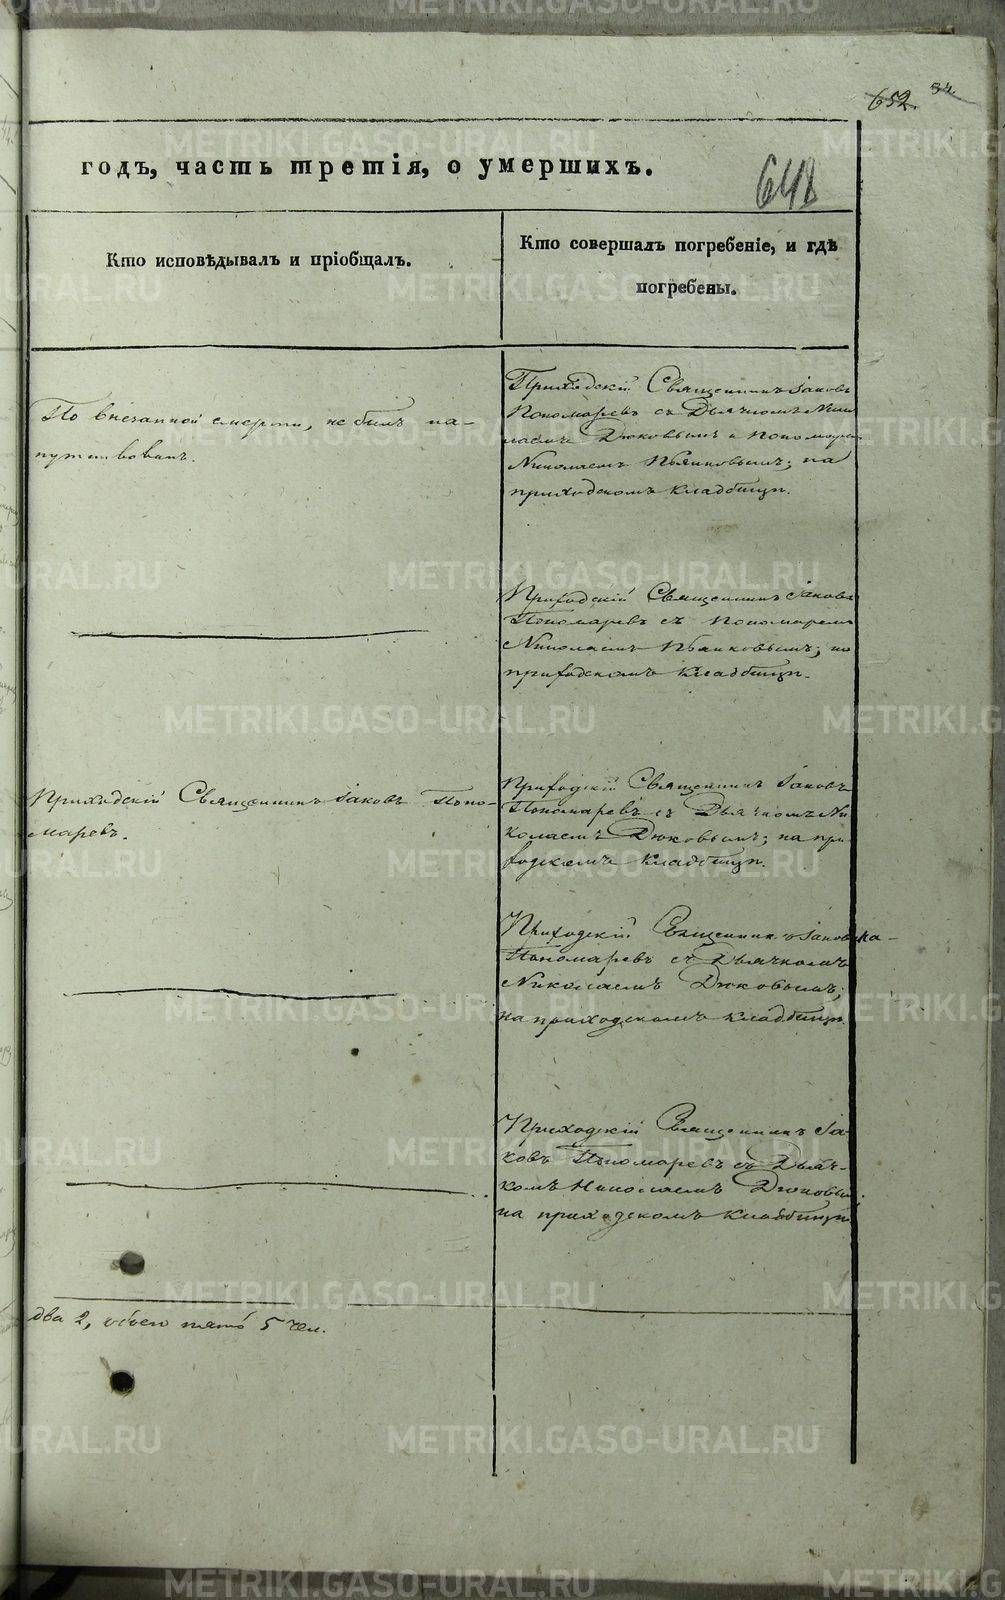 652. 34.
годъ, часть третія, о умершихъ.
648
Кто исповѣдывалъ и пріобщалъ.
Кто совершалъ погребеніе, и гдѣ
погребены.
По внезапной смерти, не былъ на-
путствованъ.
Приходскій Священникъ Іаковъ
Пономаревъ съ Дьячкомъ Нико
лаемъ Дюковымъ и Пономаремъ
Николаемъ Пьянковымъ; на
приходскомъ кладбищѣ.
Приходскій Священникъ Іаковъ
Пономаревъ съ Пономаремъ
Николаемъ Пьянковымъ; на
приходскомъ кладбищѣ.
Приходскій Священникъ Іаковъ Поно-
маревъ.
Приходскій Священникъ Іаковъ
Пономаревъ съ Дьячкомъ Ни
колаемъ Дюковымъ; на при
ходскомъ кладбищѣ.
Приходскій Священникъ Іаковъ
Пономаревъ съ Дьячкомъ
Николаемъ Дюковымъ;
на приходскомъ кладбищѣ.
Приходскій Священникъ Іа-
ковъ Пономаревъ съ Дьяч-
комъ Николаемъ Дюковым;
на приходскомъ кладбищѣ
два 2, обоего пять 5 чел.
METRIKI.GASO-URAL.RU